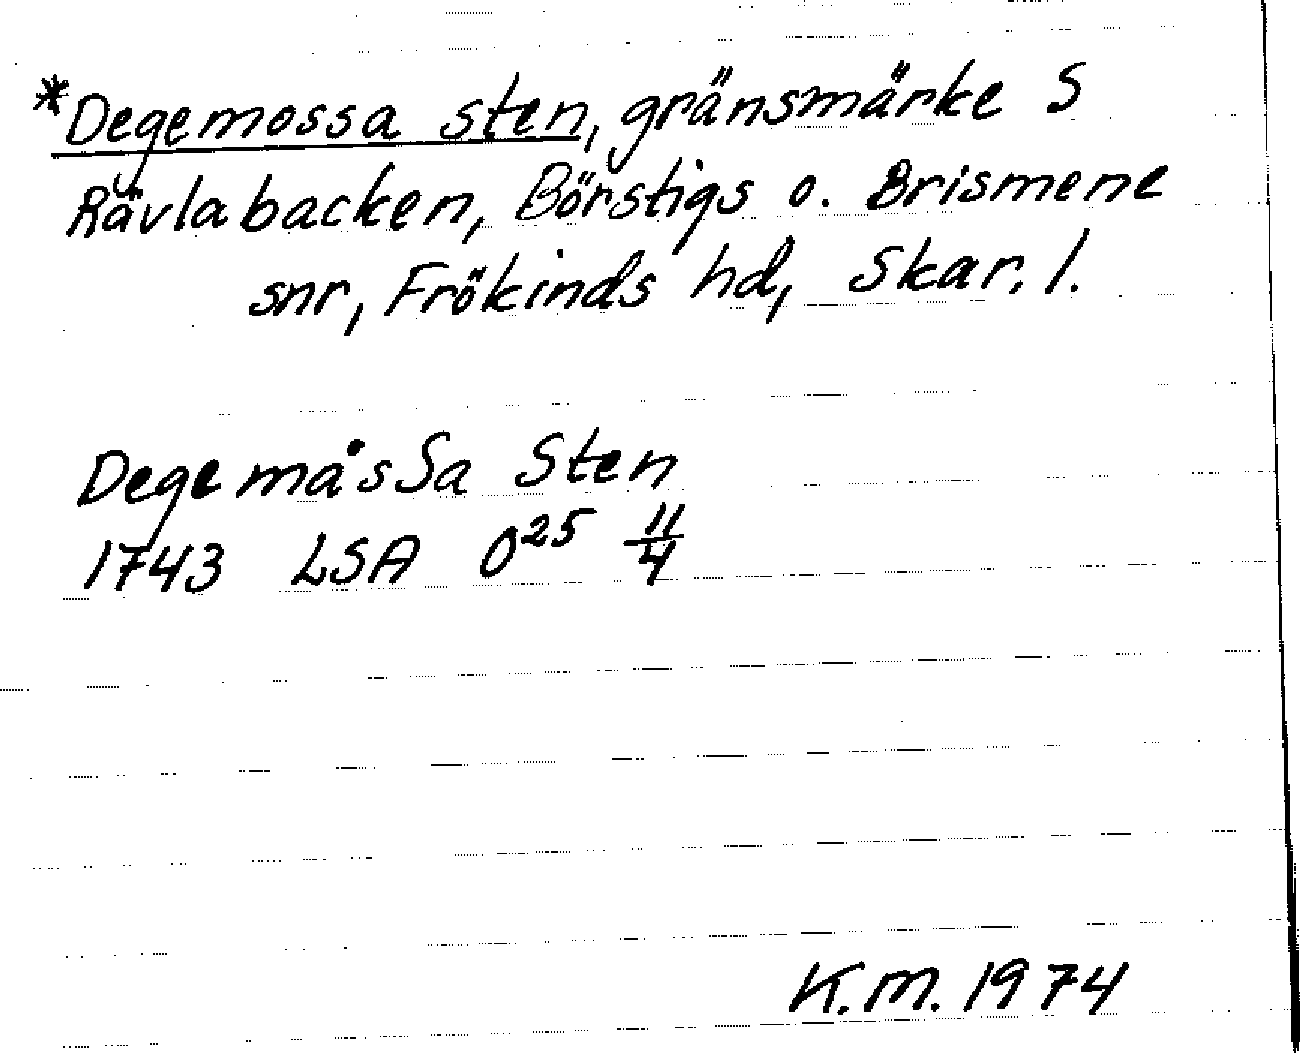 *Degemossa sten, gränsmärke S
Rävlabacken, Börstigs o. Brismene
snr, Frökinds hd, Skar. l.
DegemåsSa Sten
1743 LSA O²⁵ 11/4
K.M. 1974